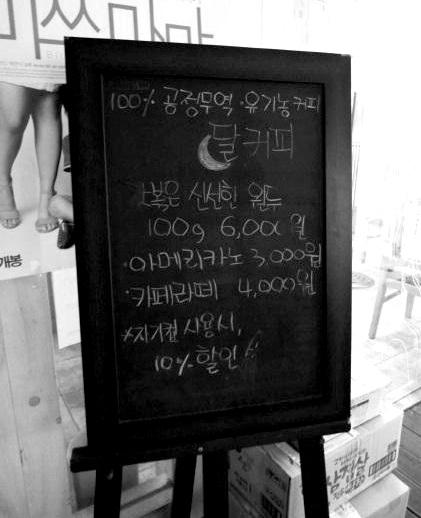 미쓰마마
개봉
100% 공정무역·유기농커피
달커피
볶은 신선한 원두
100g 6,000원
·아메리카노 3,000원
·카페라떼 4,000원
*자기컵 사용시,
10% 할인
삼정살